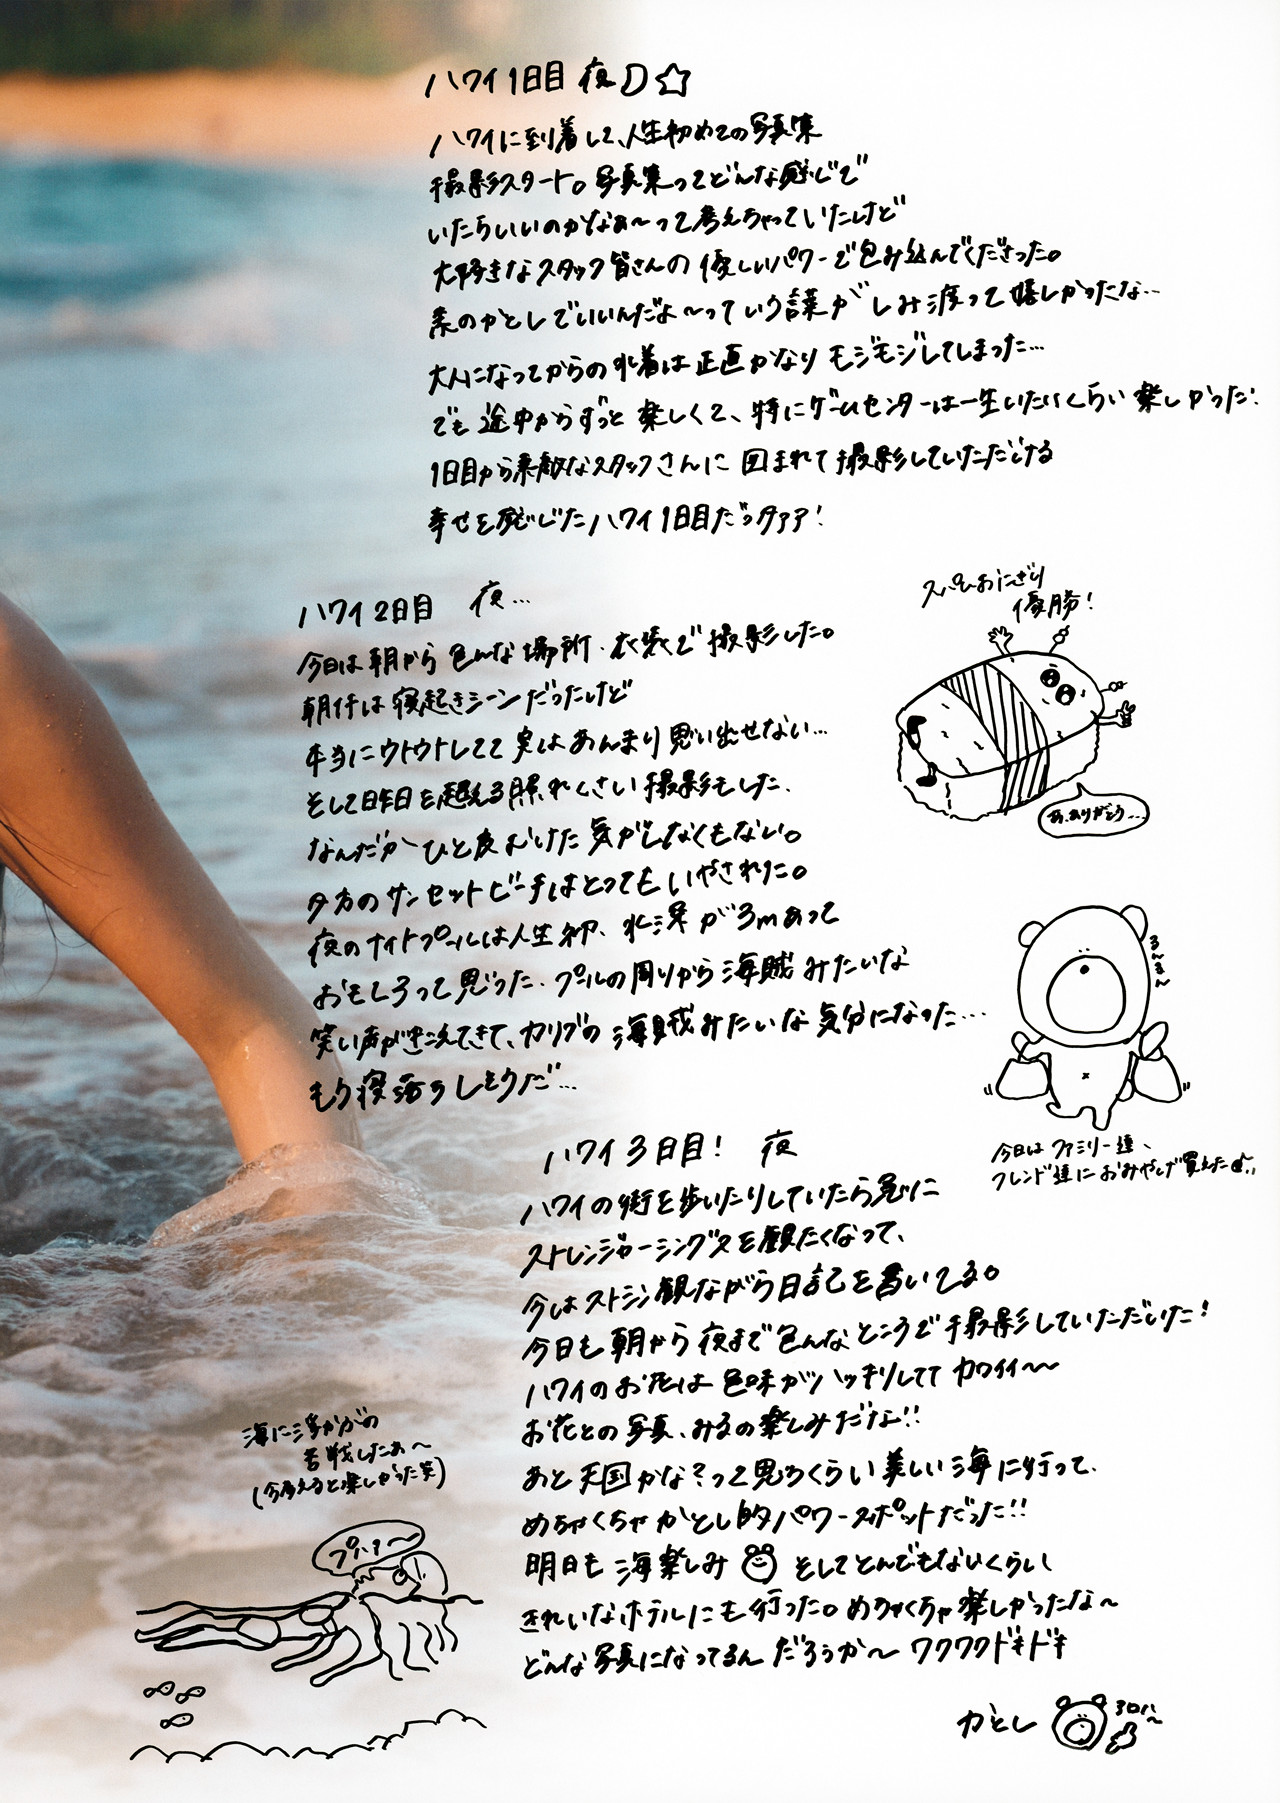 ハワイ1日目 夜
ハワイに到着して、人生初めての写真集
撮影スタート。写真集ってどんな感じで
いたらいいのかなぁ〜って考えちゃっていたけど
大好きなスタッフ皆さんの優しいパワーで包み込んでくださった。
素のかとしでいいんだよ〜っていう言葉がしみ渡って嬉しかったな…
大人になってからの水着は正直かなりモジモジしてしまった…
でも途中からずっと楽しくて、特にゲームセンターは一生いたいくらい楽しかった!
1日目から素敵なスタッフさんに囲まれて撮影していただける
幸せを感じたハワイ1日目だっタァァ!
スパムおにぎり
優勝!
あ、ありがとう…
ハワイ2日目 夜…
今日は朝から色んな場所、衣装で撮影した。
朝イチは寝起きシーンだったけど
本当にウトウトしてて実はあんまり思い出せない…
そして昨日を超える照れくさい撮影もした、
なんだかひと皮むけた気がしなくもない。
夕方のサンセットビーチはとってもいやされた。
夜のナイトプールは人生初、水深が3mあって
おもしろって思った、プールの周りから海賊みたいな
笑い声がきこえてきて、カリブの海賊みたいな気分になった…
もう寝落ちしそうだ…
るんるん
今日はファミリー達、
フレンド達におみやげ買えたぜい
ハワイ3日目! 夜
ハワイの街を歩いたりしていたら急に
ストレンジャーシングスを観たくなって、
今はストシン観ながら日記を書いてる。
今日も朝から夜まで色んなところで撮影していただいた!
ハワイのお花は色味がハッキリしててカワイイ〜〜
お花との写真、みるの楽しみだな!!
あと天国かな?って思うくらい美しい海に行って、
めちゃくちゃかとし的パワースポットだった!!
明日も海楽しみ そしてとんでもないくらい
きれいなホテルにも行った。めちゃくちゃ楽しかったな〜
どんな写真になってるんだろうか〜ワクワクドキドキ
海に浮かぶの
苦戦したぁ〜
(今考えると楽しかった笑)
プハァ〜
かとし